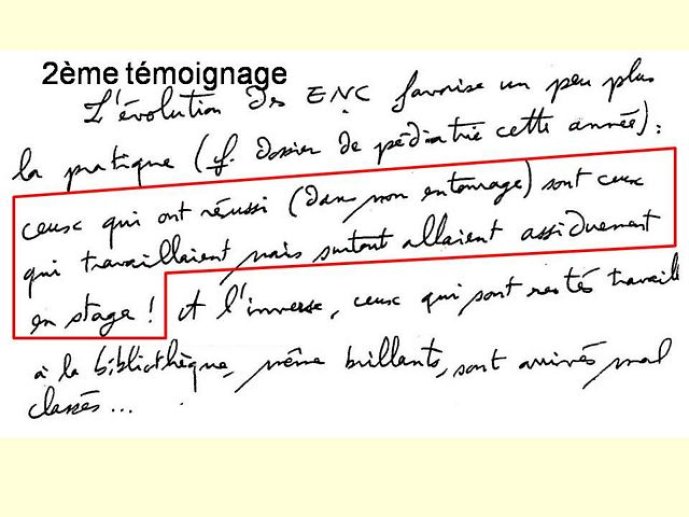 2ème témoignage
L'évolution des ENC favorise un peu plus
la pratique (cf. dossier de pédiatrie cette année) :
ceux qui ont réussi (dans mon entourage) sont ceux
qui travaillaient mais surtout allaient assiduement
en stage ! A l'inverse, ceux qui sont restés travaill
à la bibliothèque, même brillants, sont arrivés mal
classés...